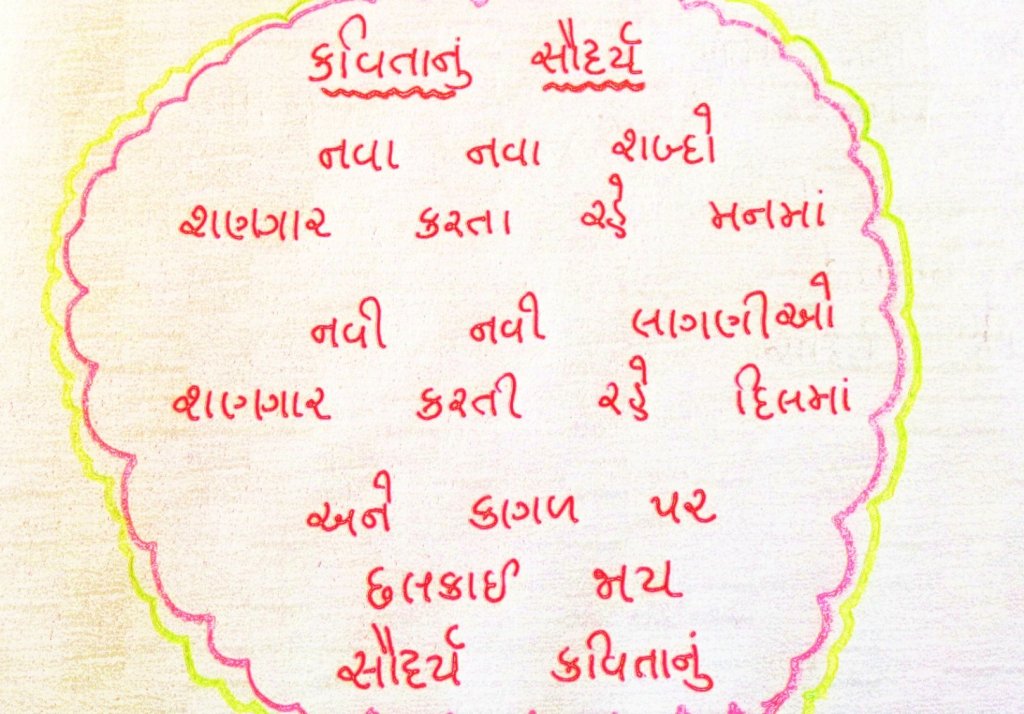 કવિતાનું સૌદર્ય
નવા નવા શબ્દો
શણગાર કરતા રહે મનમાં
નવી નવી લાગણીઓ
શણગાર કરતી રહે દિલમાં
અને કાગળ પર
છલકાઈ જાય
સૌદર્ય કવિતાનું